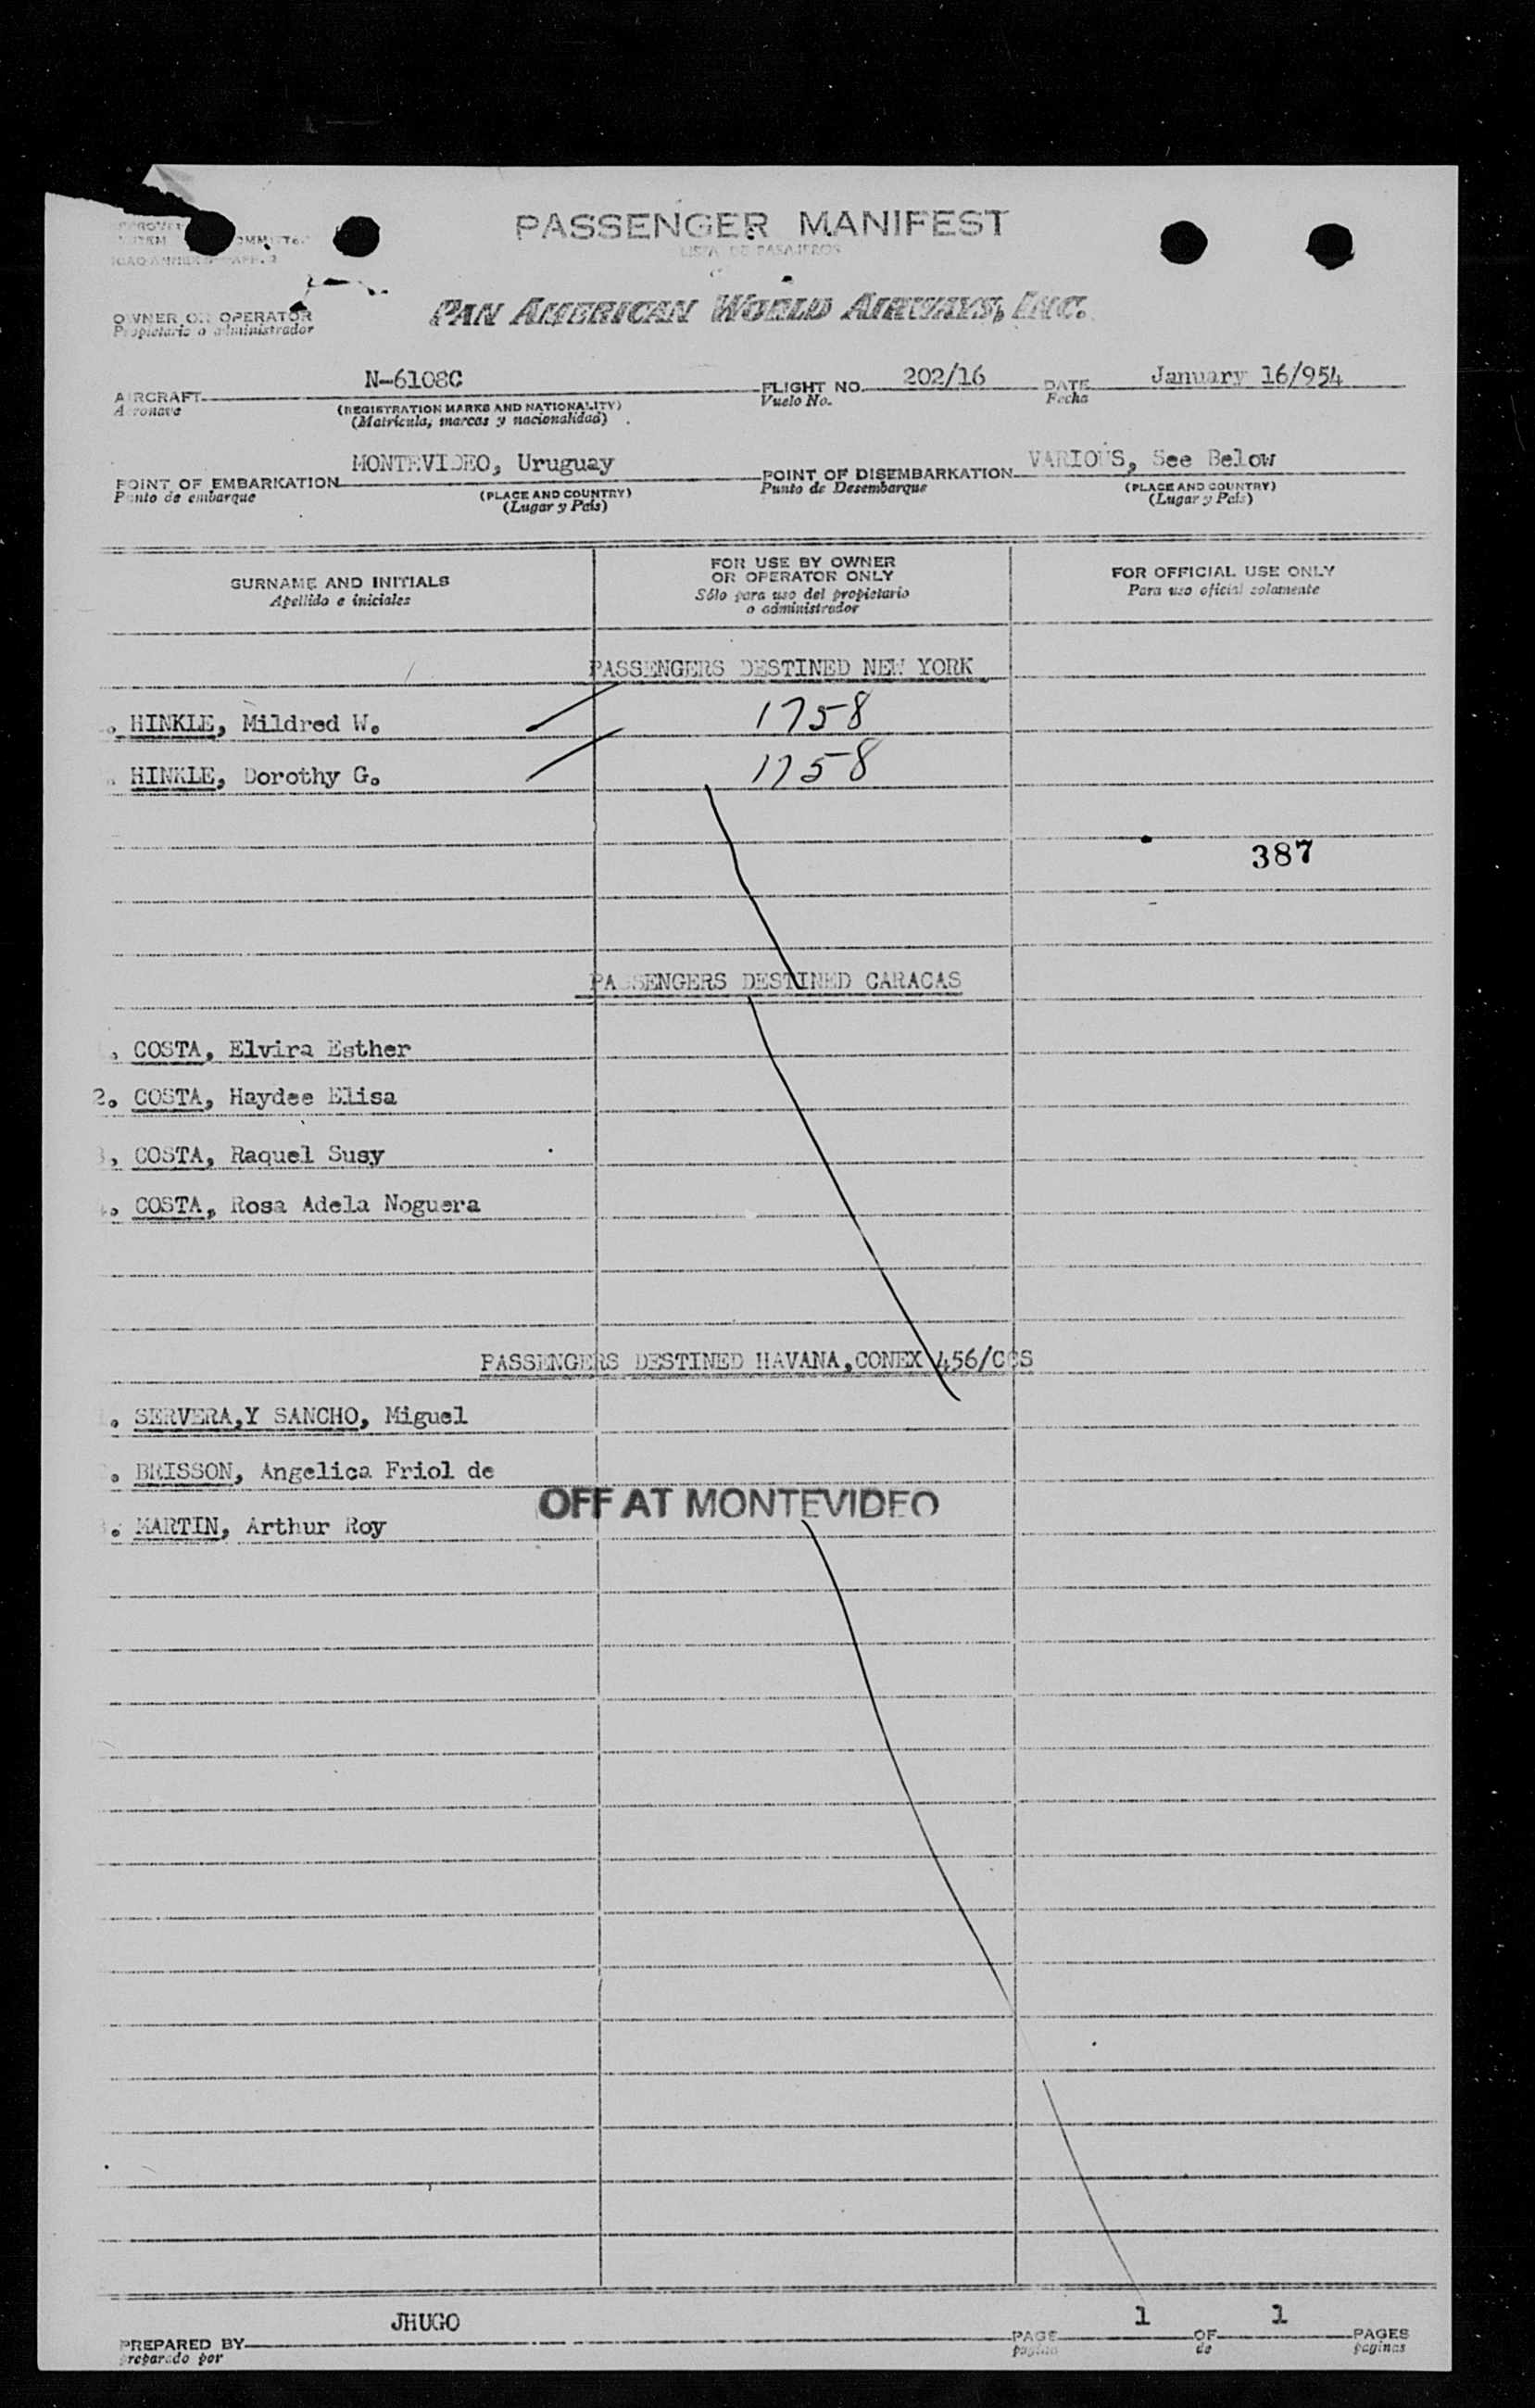 PASSENGER MANIFEST
LISTA DE PASAJEROS
OWNER OR OPERATOR
Propietario o administrador
PAN AMERICAN WORLD AIRWAYS, INC.
AIRCRAFT N-6108C FLIGHT NO. 202/16 DATE January 16/954
Aeronave (REGISTRATION MARKS AND NATIONALITY) Vuelo No. Fecha
(Matrícula, marcas y nacionalidad)
POINT OF EMBARKATION MONTEVIDEO, Uruguay POINT OF DISEMBARKATION VARIOUS, See Below
Punto de embarque (PLACE AND COUNTRY) Punto de Desembarque (PLACE AND COUNTRY)
(Lugar y País) (Lugar y País)
SURNAME AND INITIALS FOR USE BY OWNER OR OPERATOR ONLY FOR OFFICIAL USE ONLY
Apellido e iniciales Sólo para uso del propietario o administrador Para uso oficial solamente
PASSENGERS DESTINED NEW YORK
HINKLE, Mildred W. 1758
HINKLE, Dorothy G. 1758
387
PASSENGERS DESTINED CARACAS
. COSTA, Elvira Esther
2. COSTA, Haydee Elisa
3, COSTA, Raquel Susy
4. COSTA, Rosa Adela Noguera
PASSENGERS DESTINED HAVANA,CONEX 456/CCS
. SERVERA,Y SANCHO, Miguel
. BRISSON, Angelica Friol de
OFF AT MONTEVIDEO
. MARTIN, Arthur Roy
PREPARED BY JHUGO PAGE 1 OF 1 PAGES
preparado por página de paginas